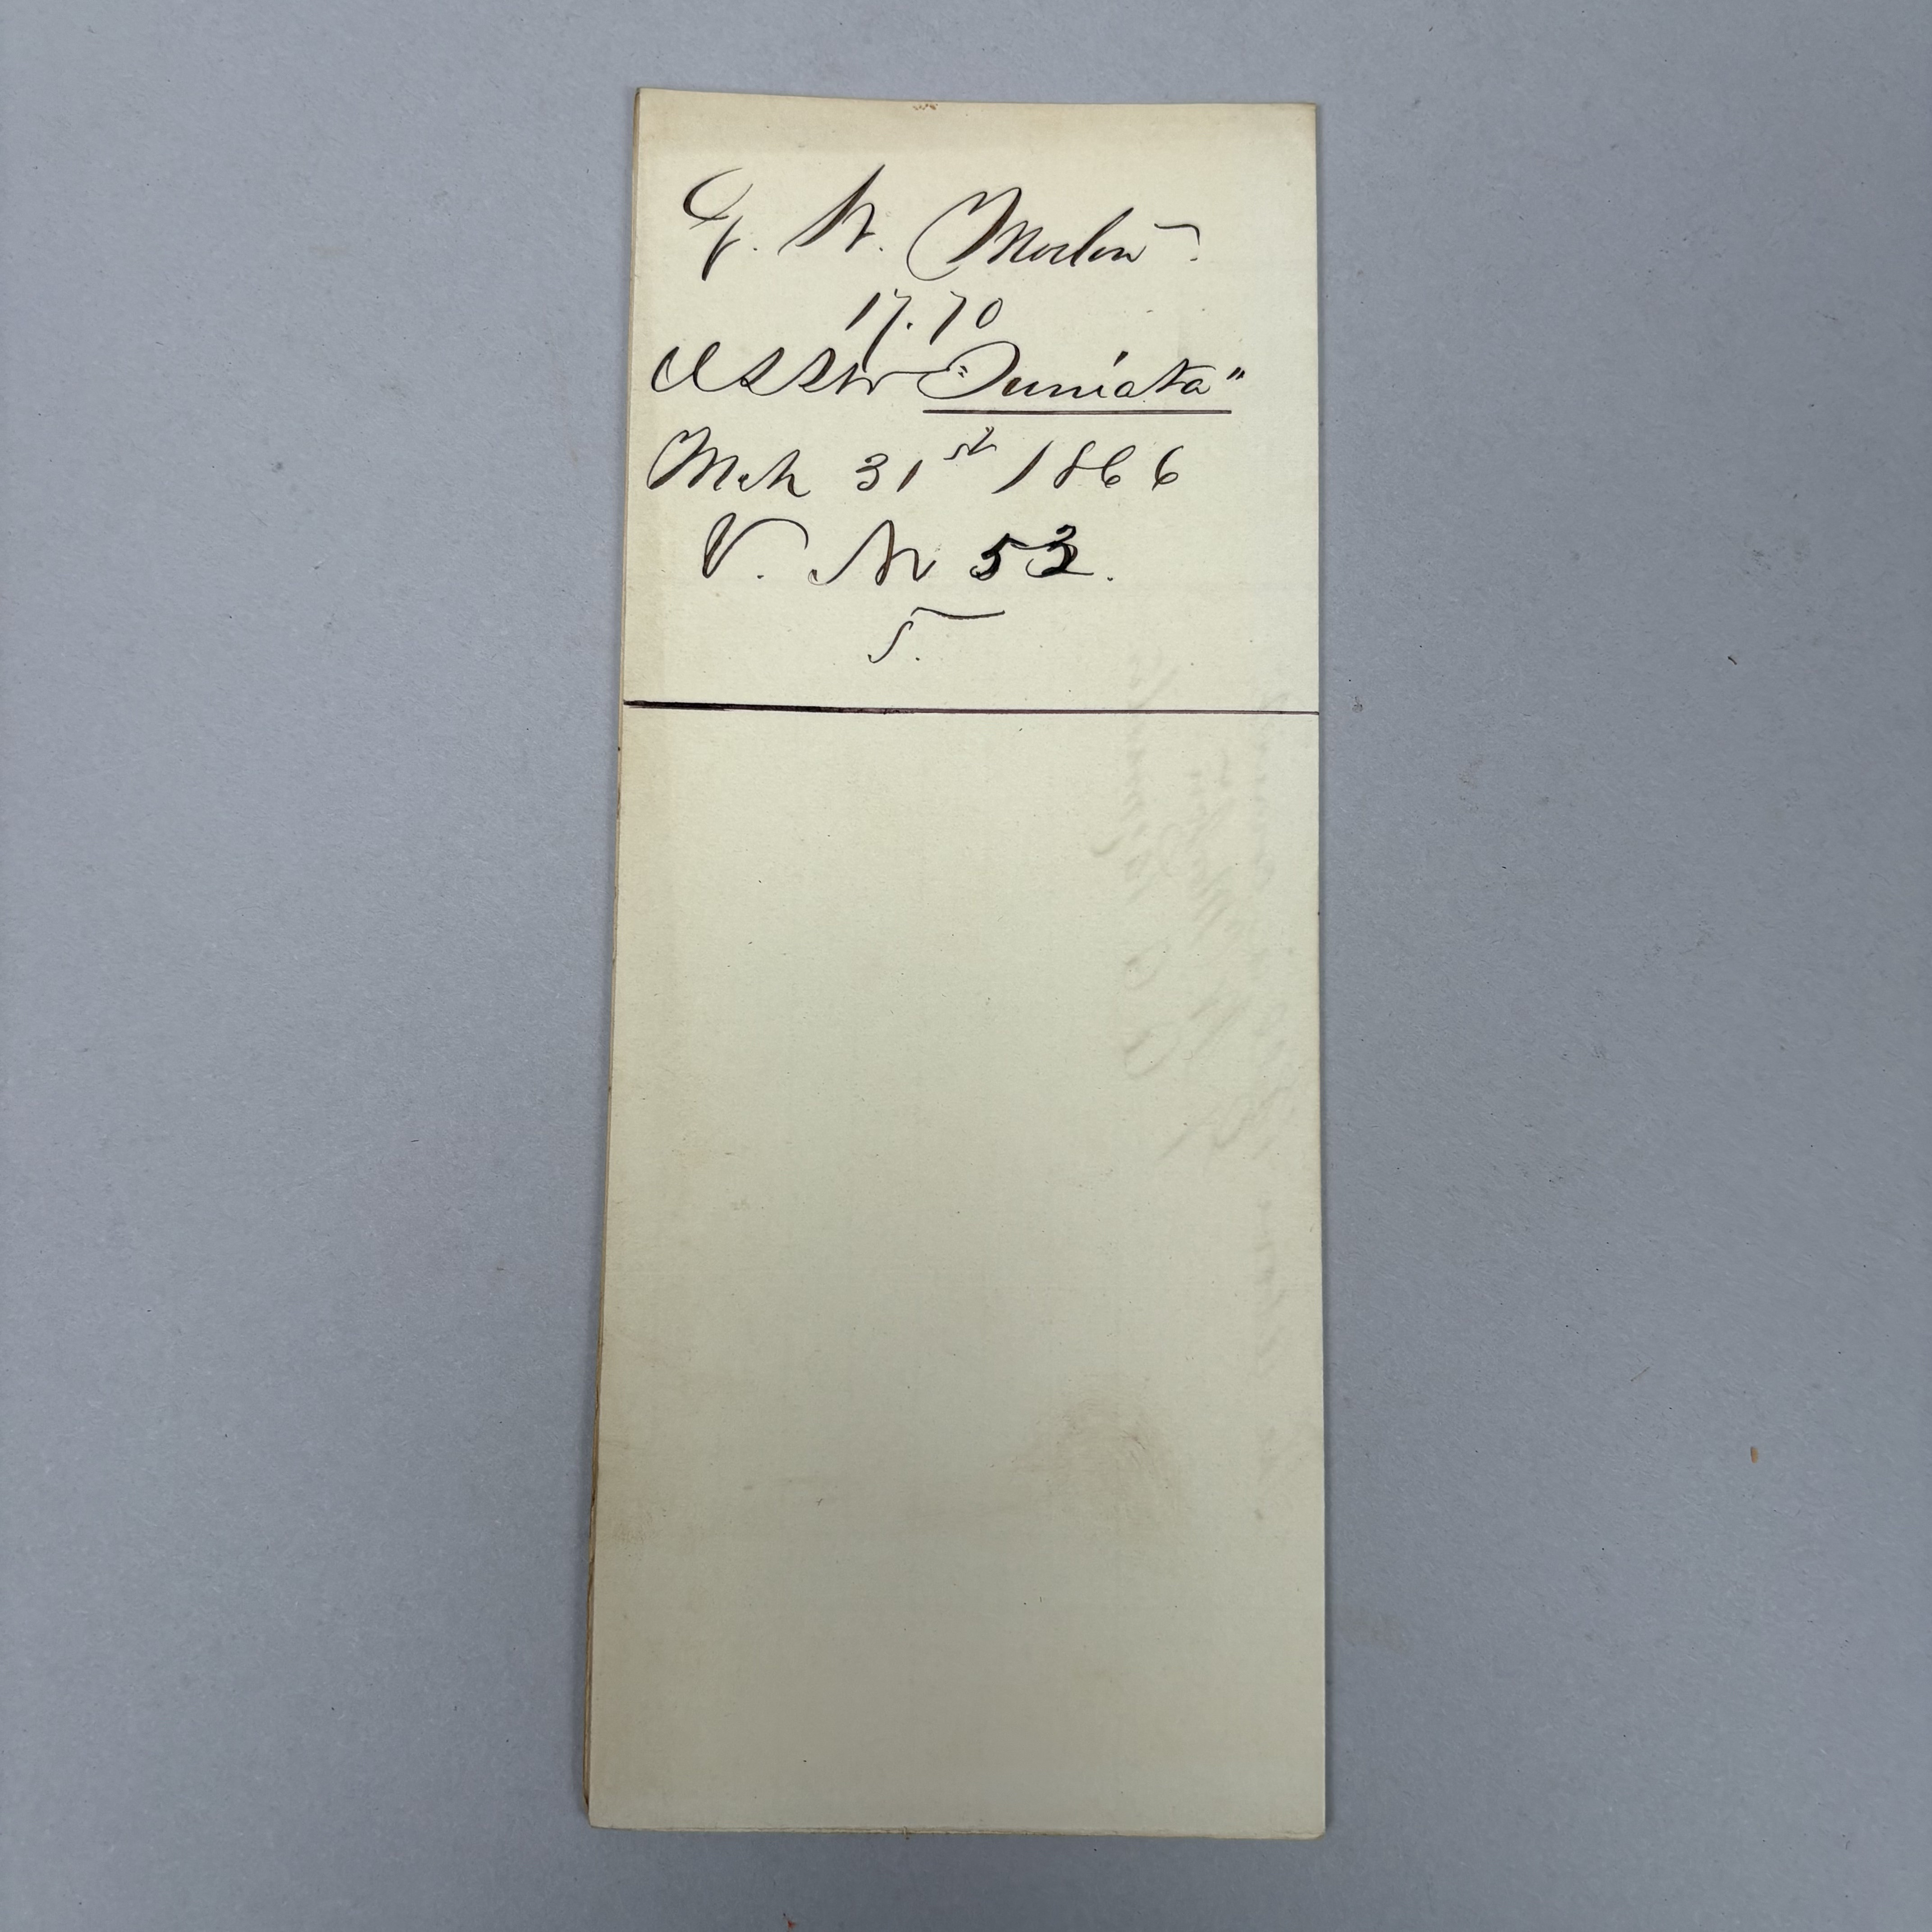 G. W. Morton
17.70
USStr "Juniata"
Mch 31st 1866
V. No 53.
5.